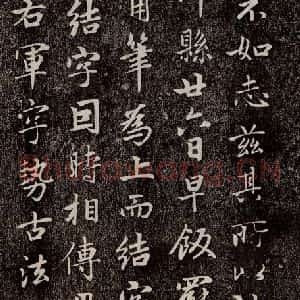 不如志茲其所以
縣廿六日早飯罷
用筆為上而結字
結字因時相傳
右軍字勢古法